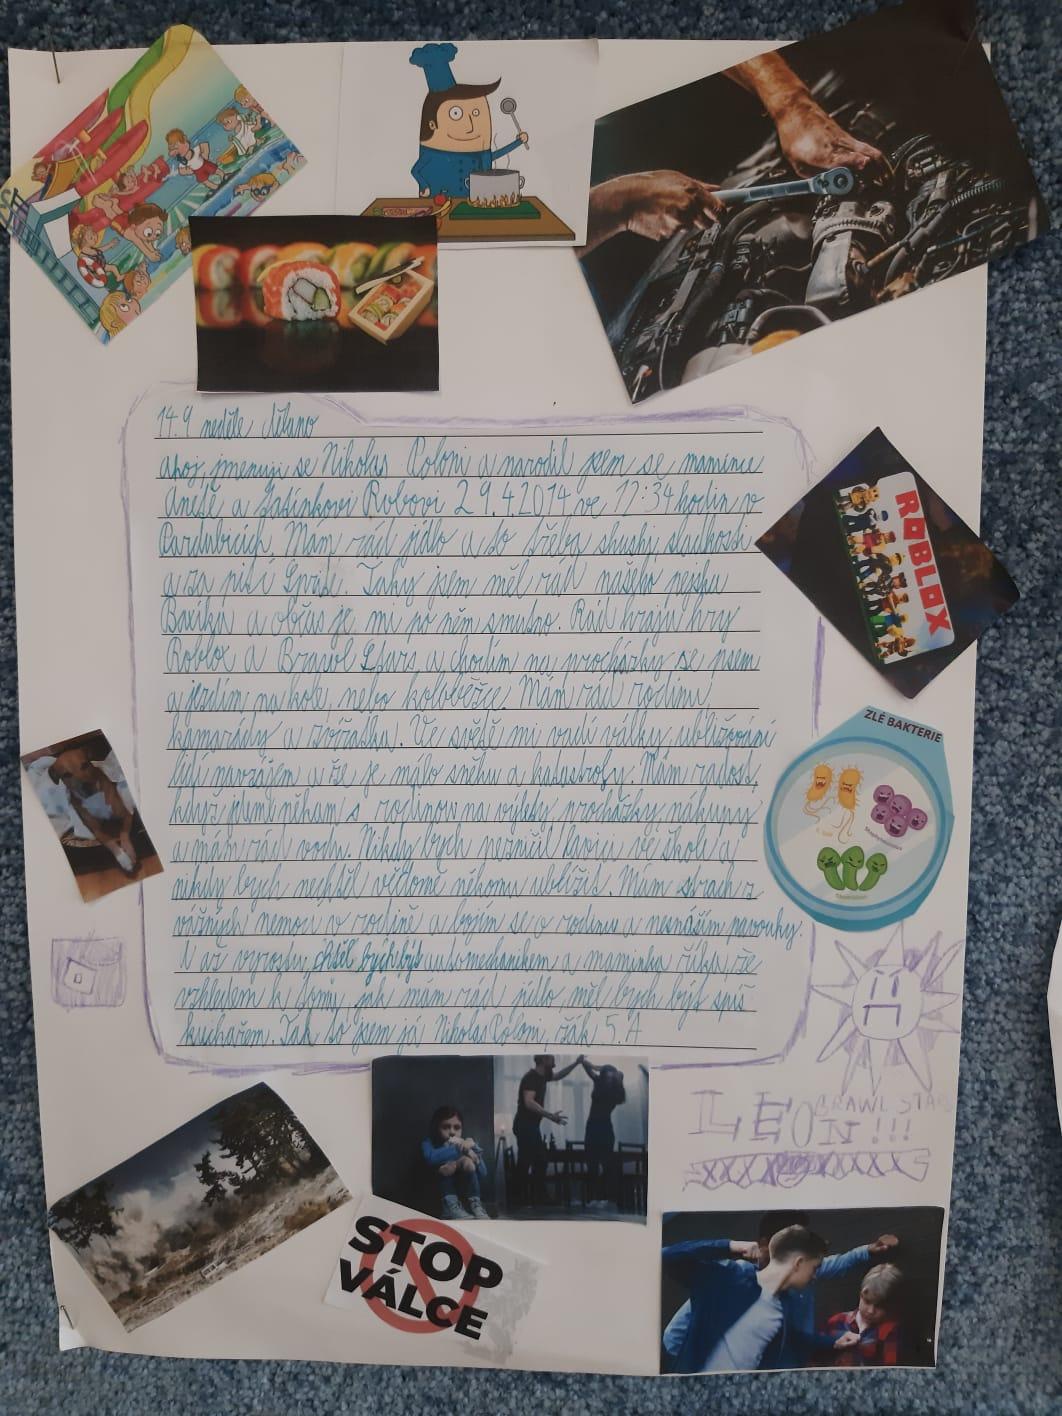 14.9 neděle, Lélano
ahoj, jmenuji se Nikolas Poloni a narodil jsem se mamince
Anetě a Tatínkovi Robovi 29.4.2014 ve 12:34 hodin v
Pardubicích. Mám rád jídlo a to třeba shushi, sladkosti
a za pití Sprite. Taky jsem měl rád našeho pejska
a občas je mi po něm smutno. Rád hraju hry
Roblox a Brawl Stars a chodím na procházky se psem
a jezdím na kole, nebo koloběžce. Mám rád rodinu,
kamarády a zvířátka. Ve světě mi vadí války, ubližování
lidí navzájem a že je málo sněhu a katastrofy. Mám radost,
když jdeme někam s rodinou na výlety, procházky, nákupy
a mám rád vodu. Nikdy bych nezničil lavici ve škole a
nikdy bych nechtěl vědomě někomu ublížit. Mám strach z
vážných nemocí v rodině a bojím se o rodinu a nesnáším pavouky.
A až vyrostu chtěl bych být automechanikem a maminka říká, že
vzhledem k tomu, jak mám rád jídlo, měl bych být spíš
kuchařem. Tak to jsem já Nikolas Poloni, žák 5.A
ROBLOX
ZLÉ BAKTERIE
LEON!!!
BRAWL STARS
STOP
VÁLCE